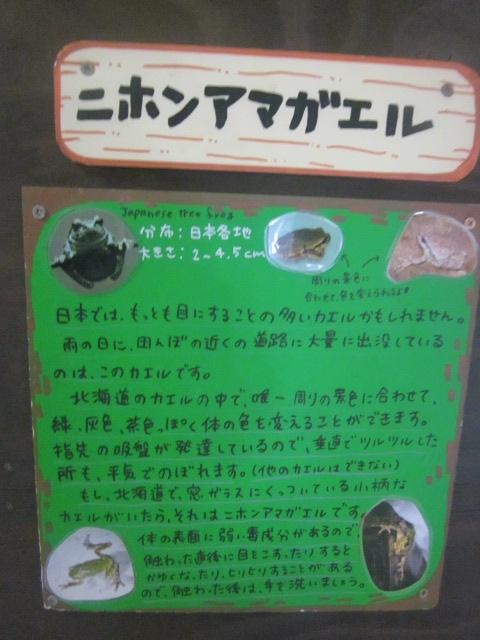 ニホンアマガエル
Japanese tree frog
分布：日本各地
大きさ：2～4.5cm
周りの景色に
合わせて色を変えられるよ
日本では、もっとも目にすることの多いカエルかもしれません。
雨の日に、田んぼの近くの道路に大量に出没している
のは、このカエルです。
北海道のカエルの中で、唯一周りの景色に合わせて、
緑、灰色、茶色っぽく体の色を変えることができます。
指先の吸盤が発達しているので、垂直でツルツルした
所も、平気でのぼれます。（他のカエルはできない）
もし、北海道で、窓ガラスにくっついている小柄な
カエルがいたら、それはニホンアマガエルです。
体の表面に弱い毒成分があるので、
触わった直後に目をこすったりすると
かゆくなったり、ヒリヒリすることがある
ので、触わった後は、手を洗いましょう。